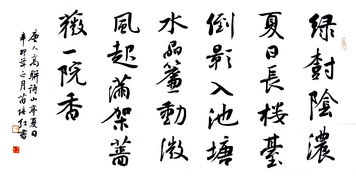 綠樹陰濃
夏日長樓臺
倒影入池塘
水晶簾動微
風起滿架薔
薇一院香
唐人高駢詩山亭夏日
辛卯年正月苗培红書